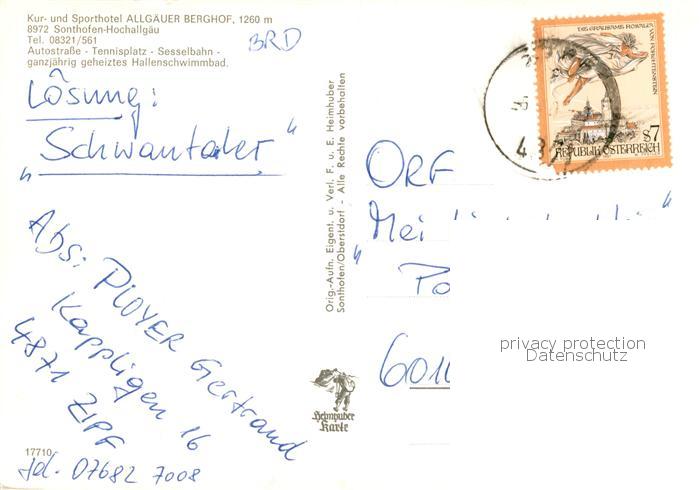 Kur- und Sporthotel ALLGÄUER BERGHOF, 1260 m
8972 Sonthofen-Hochallgäu
Tel. 08321/561
Autostraße - Tennisplatz - Sesselbahn -
ganzjährig geheiztes Hallenschwimmbad.
BRD
Lösung:
"Schwantaler"
Abs: PLOYER Gertrand
Kappligen 16
4871 ZIPF
tel. 07682 7008
17710
Orig.-Aufn. Eigent. u. Verl. F. u. E. Heimhuber
Sonthofen/Oberstdorf - Alle Rechte vorbehalten
Heimhuber
Karte
DIE GRAUSAME ROSALIA VON FORCHTENSTEIN
S7
REPUBLIK ÖSTERREICH
ORF
"Mei
Po
6010
privacy protection
Datenschutz